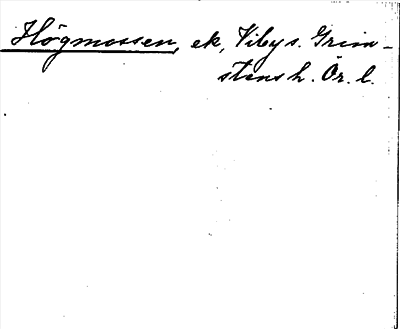 Högmossen, ek, Viby s. Grim-
stens h. Ör. l.